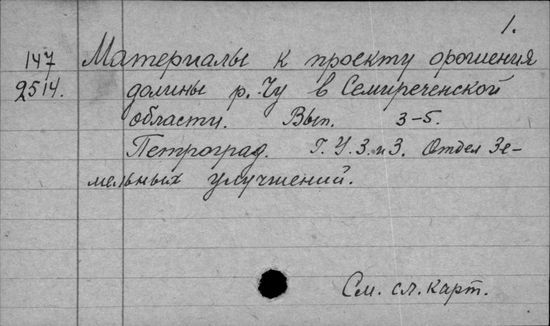 1.
147 Материалы к проекту орошения
2514. долины р. Чу в Семиреченской
области. Вып. 3-5.
Петроград. Г.У.З. и З. Отдел Зе-
мельных улучшений.
См. сл. карт.